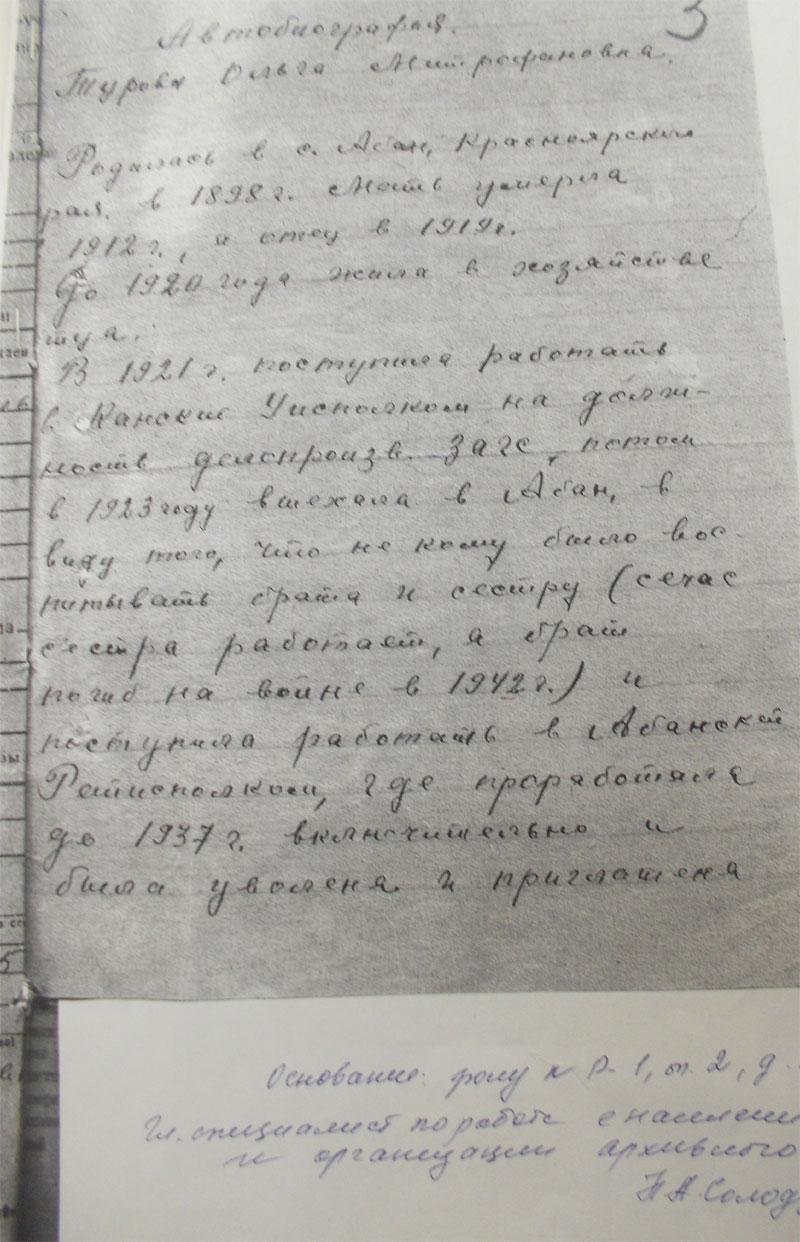 3
Автобиография.
Турова Ольга Митрофановна.
Родилась в с. Абан, Красноярский
рая. в 1898 г. Мать умерла
1912 г., а отец в 1919г.
До 1920 года жила в хозяйстве
тца.
В 1921 г. поступила работать
в Канский Уисполком на долж-
ность делопроизв. Загс, потом
в 1923 году выехала в Абан, в
виду того, что не кому было вос-
питывать брата и сестру (сечас
сестра работает, а брат
погиб на войне в 1942 г.) и
поступила работать в Абанский
Райисполком, где проработала
до 1937 г. включительно и
была уволена и приглашена
Основание: фонд Р-1, оп. 2, д.
Гл. специалист по работе с населени
и организации архивного
Н.А. Солод